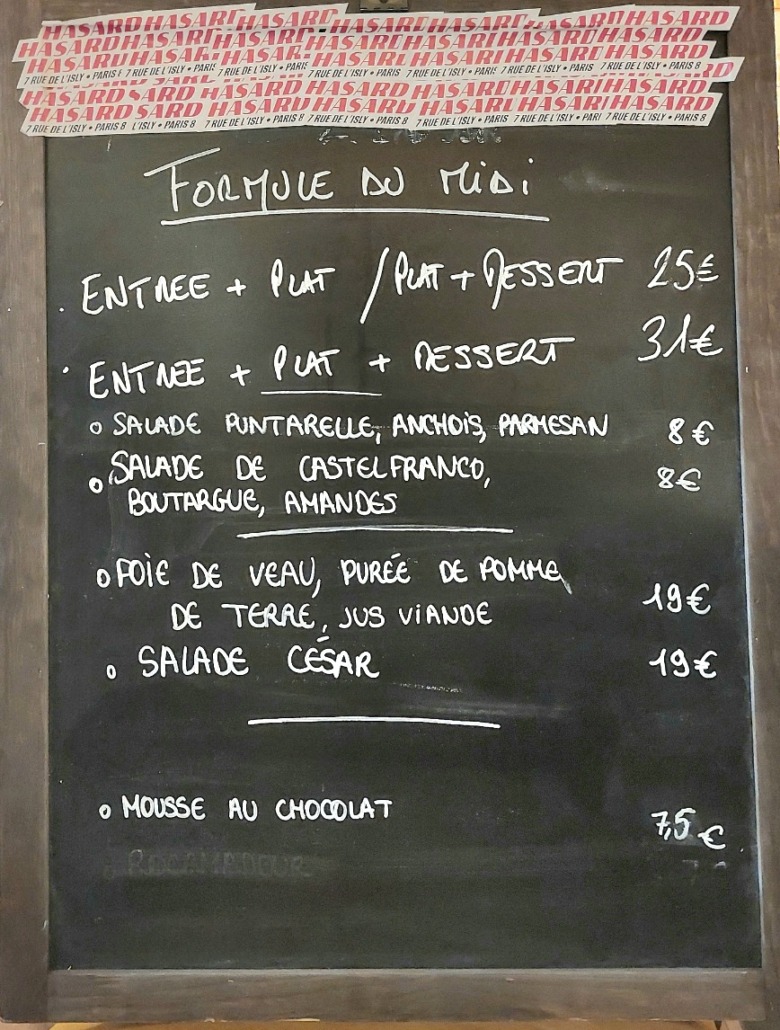 HASARD HASARD HASARD HASARD HASARD HASARD HASARD
HASARD HASARD HASARD HASARD HASARD HASARD HASARD
HASARD HASARD HASARD HASARD HASARD HASARD
7 RUE DE L'ISLY • PARIS 7 RUE DE L'ISLY • PARIS 7 RUE DE L'ISLY • PARIS 7 RUE DE L'ISLY • PARIS 7 RUE DE L'ISLY • PARIS 7 RUE DE L'ISLY • PARIS 7 RUE DE L'ISLY • PARIS 8
HASARD SARD HASARD HASARD HASARD HASARD HASARD
HASARD SARD HASARD HASARD HASARD HASARD HASARD
7 RUE DE L'ISLY • PARIS 8 L'ISLY • PARIS 8 7 RUE DE L'ISLY • PARIS 8 7 RUE DE L'ISLY • PARIS 8 7 RUE DE L'ISLY • PARIS 7 RUE DE L'ISLY • PARI 7 RUE DE L'ISLY • PARIS 8
FORMULE DU MIDI
. ENTREE + PLAT / PLAT + DESSERT 25€
. ENTREE + PLAT + DESSERT 31€
o SALADE PUNTARELLE, ANCHOIS, PARMESAN 8€
o SALADE DE CASTELFRANCO, 8€
BOUTARGUE, AMANDES
o FOIE DE VEAU, PURÉE DE POMME
DE TERRE, JUS VIANDE 19€
o SALADE CÉSAR 19€
o MOUSSE AU CHOCOLAT 7,5€
o ROCAMADEUR